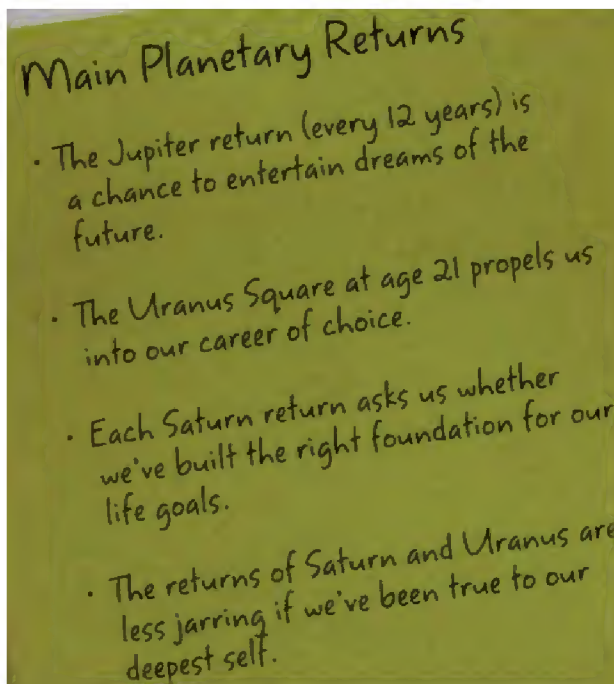 Main Planetary Returns
· The Jupiter return (every 12 years) is
a chance to entertain dreams of the
future.
· The Uranus Square at age 21 propels us
into our career of choice.
· Each Saturn return asks us whether
we've built the right foundation for our
life goals.
· The returns of Saturn and Uranus are
less jarring if we've been true to our
deepest self.